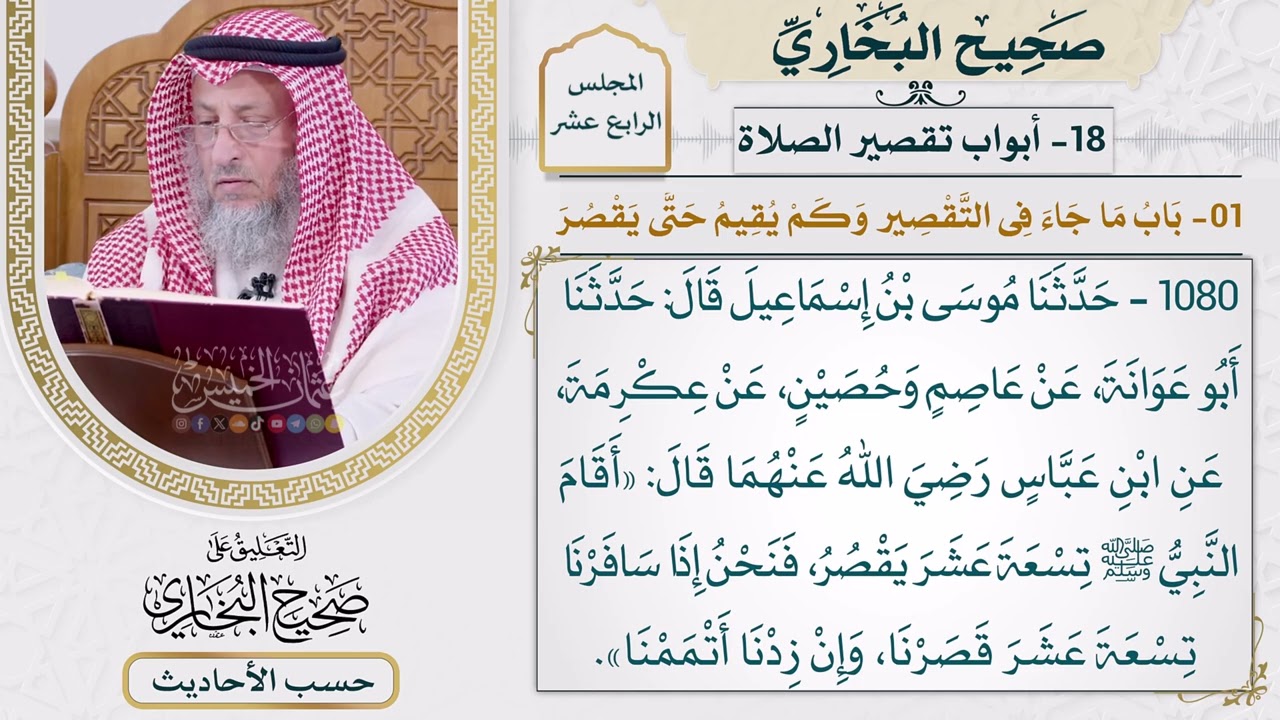 صَحِيح البُخَارِيِّ
المجلس
الرابع عشر
18- أبواب تقصير الصلاة
01- بَابُ مَا جَاءَ فِي التَّقْصِيرِ وَكَمْ يُقِيمُ حَتَّى يَقْصُرَ
1080 - حَدَّثَنَا مُوسَى بْنُ إِسْمَاعِيلَ قَالَ: حَدَّثَنَا
أَبُو عَوَانَةَ، عَنْ عَاصِمٍ وَحُصَيْنٍ، عَنْ عِكْرِمَةَ،
عَنِ ابْنِ عَبَّاسٍ رَضِيَ اللهُ عَنْهُمَا قَالَ: «أَقَامَ
النَّبِيُّ ﷺ تِسْعَةَ عَشَرَ يَقْصُرُ، فَنَحْنُ إِذَا سَافَرْنَا
تِسْعَةَ عَشَرَ قَصَرْنَا، وَإِنْ زِدْنَا أَتْمَمْنَا».
عثمان الخميس
التَّعْلِيقُ عَلَى
صَحِيحِ البُخَارِي
حسب الأحاديث